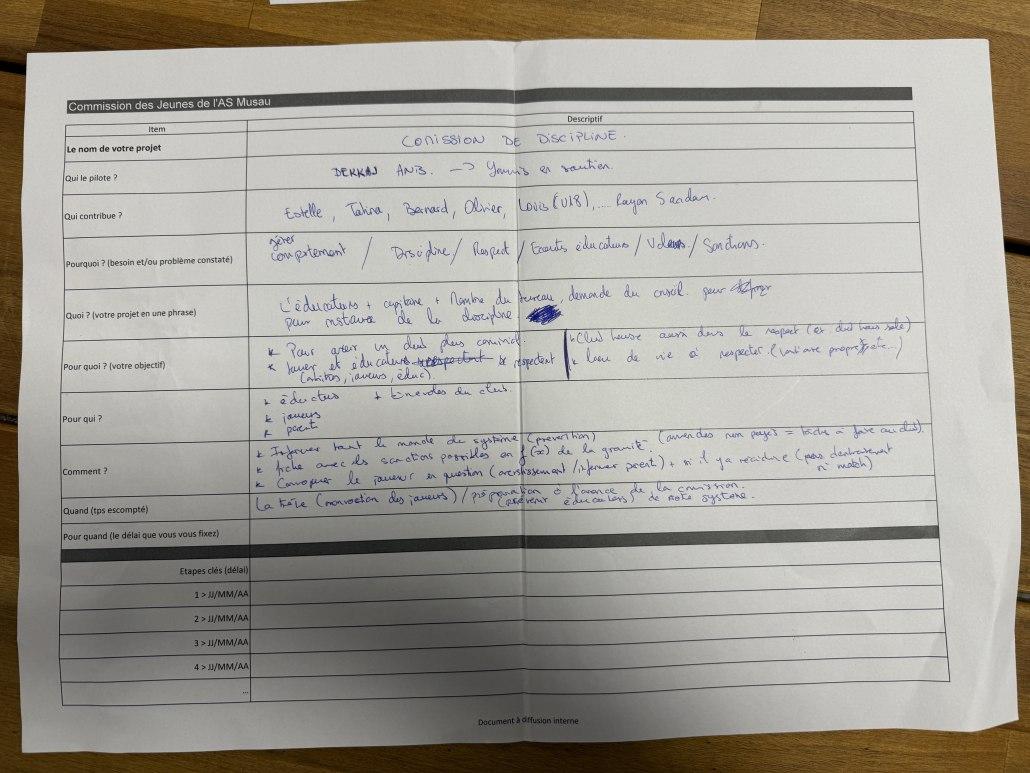 Commission des Jeunes de l'AS Musau
Item
Descriptif
Le nom de votre projet
COMISSION DE DISCIPLINE.
Qui le pilote ?
DEKKAJ ANIS. -> Younis en soutien.
Qui contribue ?
Estelle, Bernard, Olivier, Louis (U18), .... Rayan
Pourquoi ? (besoin et/ou problème constaté)
gérer
comportement / Discipline / Respect / éducateurs / Valeurs / Sanctions.
Quoi ? (votre projet en une phrase)
L'éducateurs + capitaine + Membre du bureau, demande du conseil. pour
pour instance de la discipline
Pour quoi ? (votre objectif)
* Pour avoir un club plus convivial.
* Jouer et éducateurs respectent
(arbitres, joueurs, éduc)
* Club house aussi dans le respect (ex club house sale)
* lieu de vie à respecter.
Pour qui ?
* éducteurs + bénévoles du club.
* joueurs
* parent
Comment ?
* Informer tout le monde du système (prévention)
* fiche avec les sanctions possibles en f(x) de la gravité. (amendes non payés = tâche à faire au club).
* Convoquer le joueur en question (avertissement / informer parent) + si il y a récidive (pas d'entrainement
ni match)
Quand (tps escompté)
La (convocation des joueurs) / préparation à l'avance de la comission.
(prévenir éducateurs) de notre système.
Pour quand (le délai que vous vous fixez)
Etapes clés (délai)
1 > JJ/MM/AA
2 > JJ/MM/AA
3 > JJ/MM/AA
4 > JJ/MM/AA
...
Document à diffusion interne